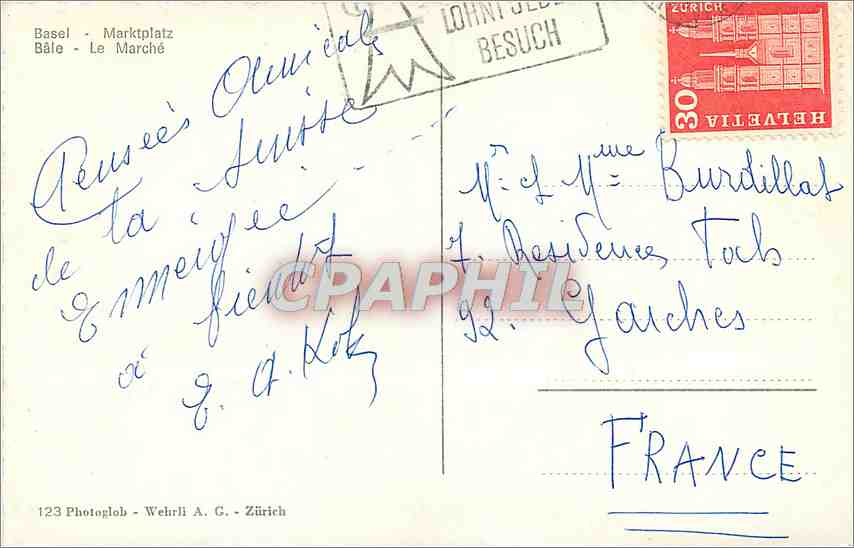 Basel - Marktplatz
Bâle - Le Marché
LOHNT JEDEN
BESUCH
ZÜRICH
30
HELVETIA
Pensées Amicales
de la Suisse
Enneigée
à bientôt
Mr et Mme Burdillat
7. Residences Tab
92. Garches
FRANCE
CPAPHIL
123 Photoglob - Wehrli A. G. - Zürich